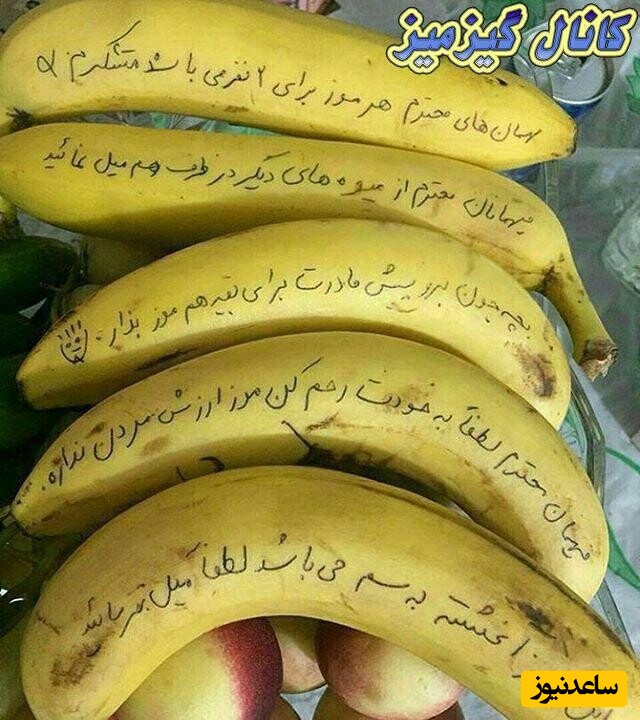 کانال گیزمیز
مهمان های محترم هر موز برای ۲ نفر می باشد متشکرم
میهمانان محترم از میوه های دیگر در ظرف هم میل نمائید
بچه جون برو پیش مادرت برای بقیه هم موز بذار.
میهمان محترم لطفاً به خودت رحم کن موز ارزش مردن نداره.
آغشته به سم می باشد لطفاً میل نفرمائید
ساعدنیوز